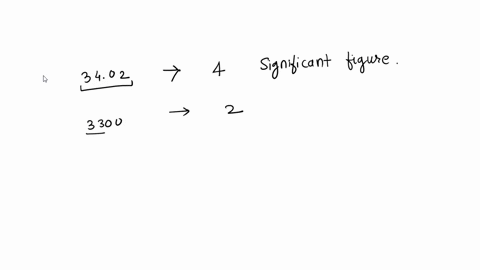 34.02 → 4 Significant figure.
3300 → 2